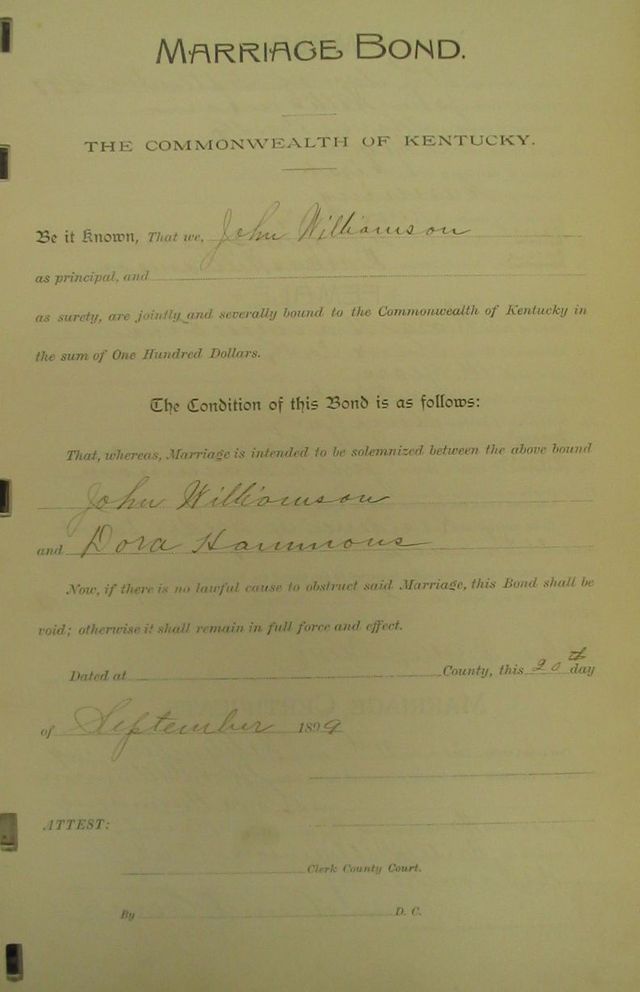 MARRIAGE BOND.
THE COMMONWEALTH OF KENTUCKY.
Be it Known, That we, John Williamson
as principal, and
as surety, are jointly and severally bound to the Commonwealth of Kentucky in
the sum of One Hundred Dollars.
The Condition of this Bond is as follows:
That, whereas, Marriage is intended to be solemnized between the above bound
John Williamson
and Dora Hammons
Now, if there is no lawful cause to obstruct said Marriage, this Bond shall be
void; otherwise it shall remain in full force and effect.
Dated at County, this 20th day
of September 1899
ATTEST:
Clerk County Court.
By D. C.